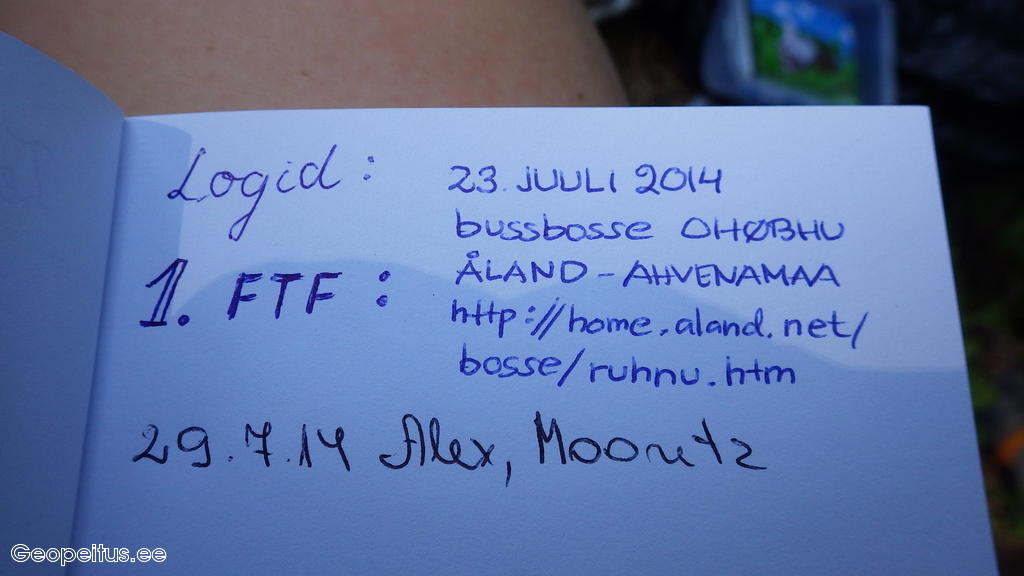 Logid:
1. FTF:
23. JUULI 2014
bussbosse OHØBHU
ÅLAND - AHVENAMAA
http://home.aland.net/
bosse/ruhnu.htm
29.7.14 Alex, Mooritz
Geopeitus.ee